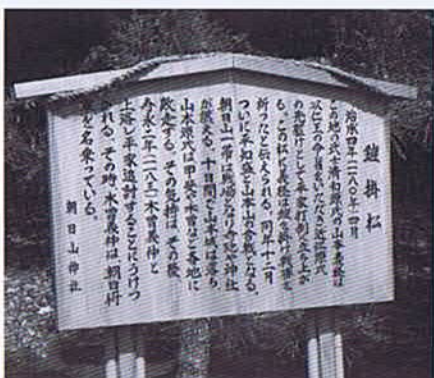 鎧掛松
治承四年(一一八〇)年四月
この地の武士清和源氏の山本義経は
以仁王の令旨をいただき近江源氏
の先駆けとして平家打倒に立ち上が
る。この松に義経は鎧を掛け戦勝を
祈ったと伝えられる。同年十二月
ついに平知盛と山本山の合戦となる。
朝日山一帯は戦場となり寺院や神社
が燃える。十日間で山本城は落ち
山本源氏は甲斐や木曽など各地に
敗走する。その気持は、その後、
寿永二年(一一八三)木曽義仲と
上洛し平家追討することにうけつ
がれる。その時、木曽義仲は、朝日将
軍を名乗っている。
朝日山神社